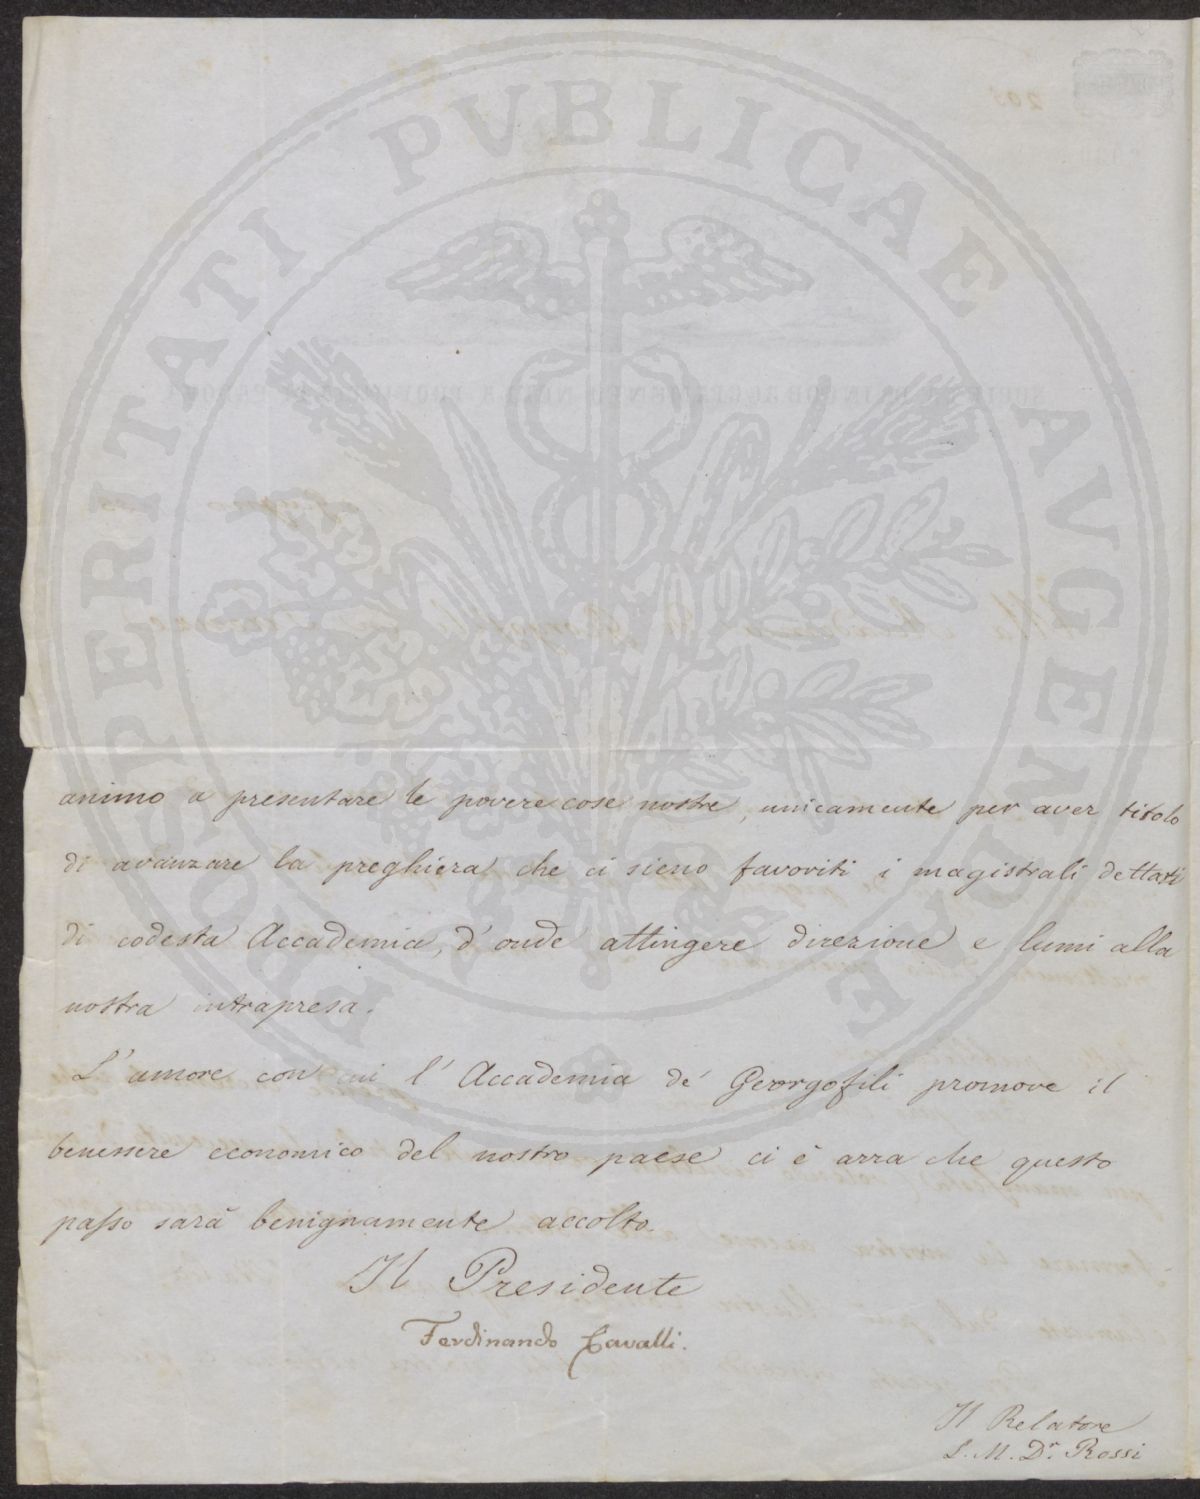 PROSPERITATI PVBLICAE AVGENDAE
animo a presentare le povere cose nostre, unicamente per aver titolo
di avanzare la preghiera che ci sieno favoriti i magistrali dettati
di codesta Accademia, d'onde attingere direzione e lumi alla
nostra intrapresa.
L'amore con cui l'Accademia de' Georgofili promove il
benessere economico del nostro paese ci è arra che questo
passo sarà benignamente accolto.
Il Presidente
Ferdinando Cavalli.
Il Relatore
L. M. Dr. Rossi